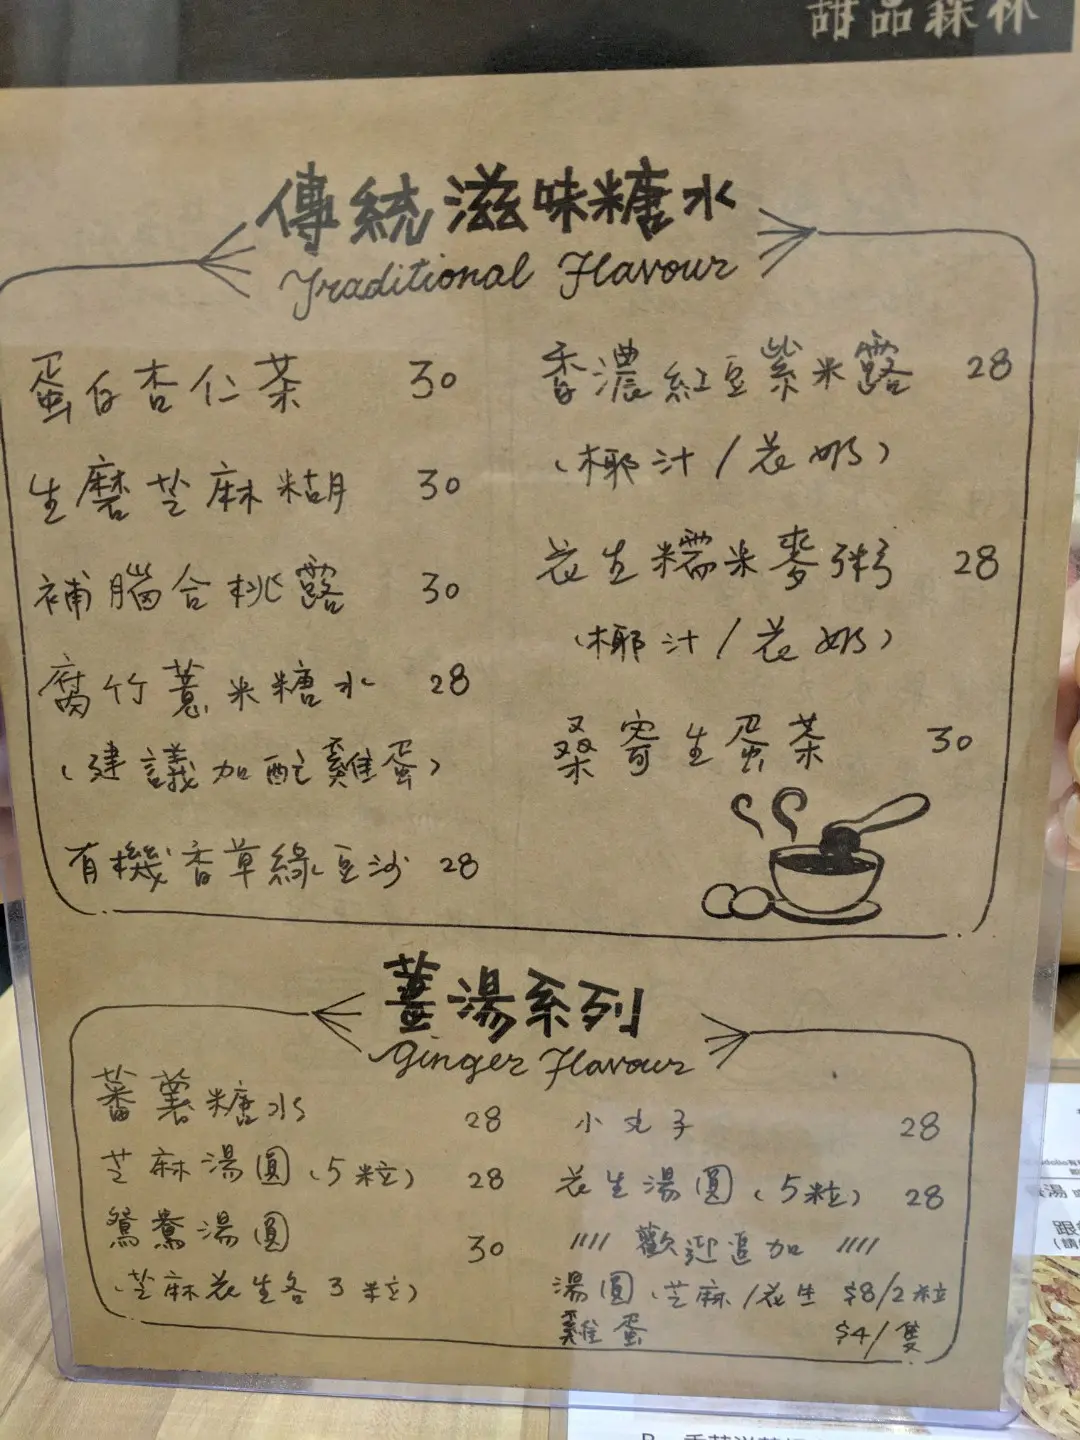 甜品森林
傳統滋味糖水
Traditional Flavour
蛋白杏仁茶 30
生磨芝麻糊 30
補腦合桃露 30
腐竹薏米糖水 28
(建議加配雞蛋)
有機香草綠豆沙 28
香濃紅豆紫米露 28
(椰汁/花奶)
花生糯米麥粥 28
(椰汁/花奶)
桑寄生蛋茶 30
薑湯系列
Ginger Flavour
蕃薯糖水 28
芝麻湯圓(5粒) 28
鴛鴦湯圓 30
(芝麻花生各3粒)
小丸子 28
花生湯圓(5粒) 28
//// 歡迎追加 ////
湯圓(芝麻/花生 $8/2粒
雞蛋 $4/隻
湯
跟